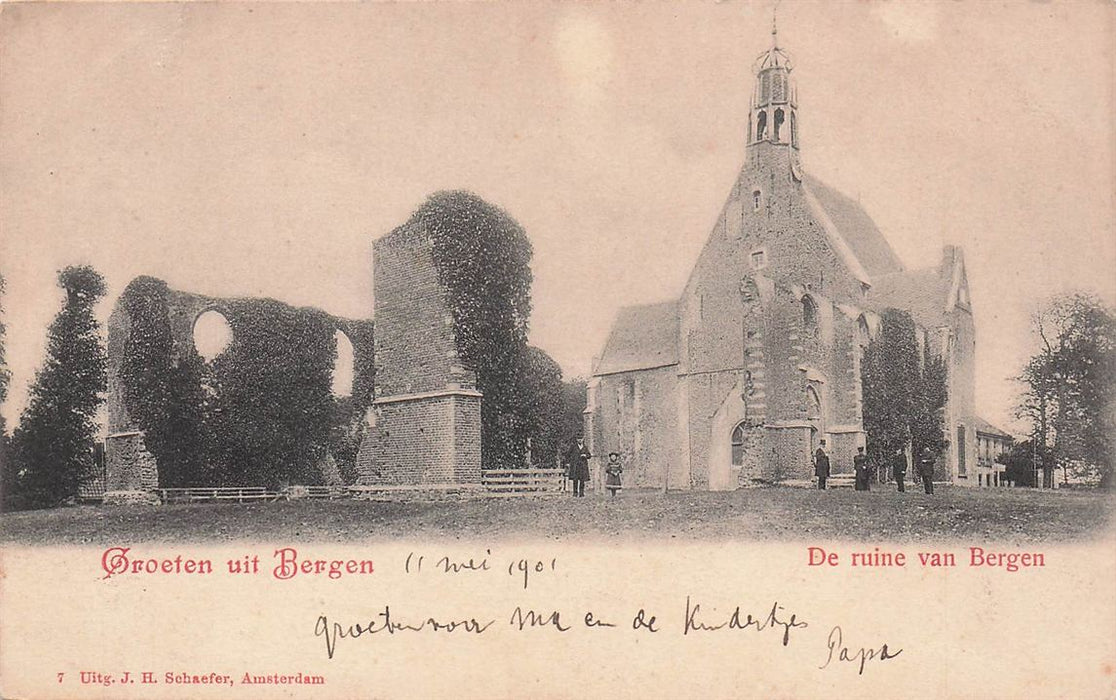 Groeten uit Bergen 11 mei 1901 De ruine van Bergen
groeten voor Ma en de Kindertjes
Papa
7 Uitg. J. H. Schaefer, Amsterdam